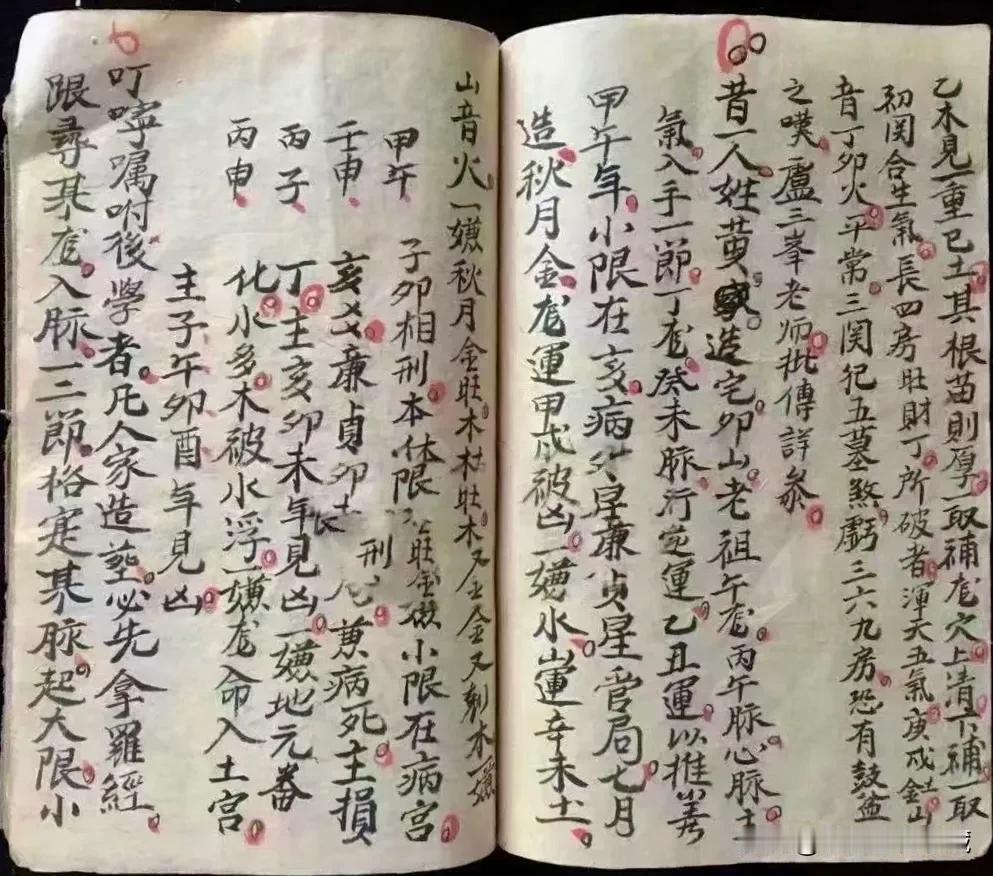 乙木見一重己土其根苗則厚一取補龙穴上清下補一取
初関合生氣長四房旺財丁所破者渾天五氣庚戍金山
音丁卯火平常三関犯五墓煞虧三六九房恐有鼓盆
之嘆盧三峯老师批傳詳叅
昔一人姓黄家造宅卯山老祖午龙丙午脉心脉土
氣入手一節丁龙癸未脉行定運乙丑運以推差
甲午年小限在亥病外星廉貞星管局七月
造秋月金龙運甲戍被凶一嫌水山運辛未土
山音火一嫌秋月金旺木林旺木又金金又剋木一嫌
甲午 子卯相刑本休限 旺金嫌小限在病宮
壬申 亥爻廉貞卯 刑 黄病死主損
丙子 丁主亥卯未年見凶一嫌地元畨
丙申 化水多木被水浮一嫌龙命入土宮
主子午卯酉年見凶
叮嚀嘱咐後學者凡人家造塟必先拿羅經
跟尋某龙入脉一二節格定某脉起大限小